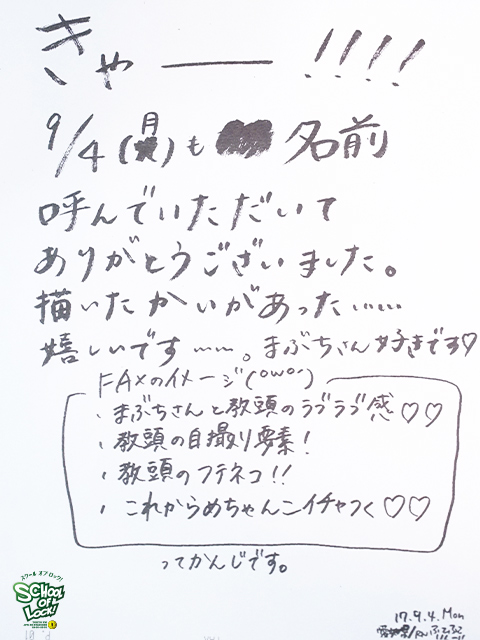 きゃー!!!!
9/4(月)も 名前
呼んでいただいて
ありがとうございました。
描いたかいがあった……
嬉しいです……。まぶちさん好きです♡
FAXのイメージ(OWO")
・まぶちさんと教頭のラブラブ感♡♡
・教頭の自撮り要素!
・教頭のフテネコ!!
・これからめちゃんこイチャつく♡♡
ってかんじです。
スクール オブ ロック!
SCHOOL OF LOCK!
17.9.4.Mon
愛知県/RN